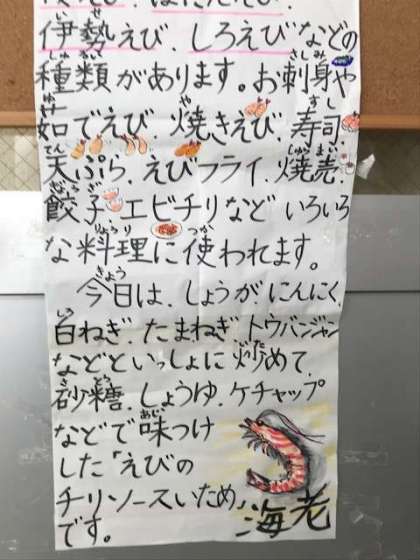 伊勢えび、しろえびなどの
種類があります。お刺身や
茹でえび、焼きえび、寿司、
天ぷら、えびフライ、焼売、
餃子、エビチリなどいろいろ
な料理に使われます。
今日は、しょうが、にんにく、
白ねぎ、たまねぎ、トウバンジャン
などといっしょに炒めて、
砂糖、しょうゆ、ケチャップ
などで味つけ
した「えびの
チリソースいため」
です。
海老